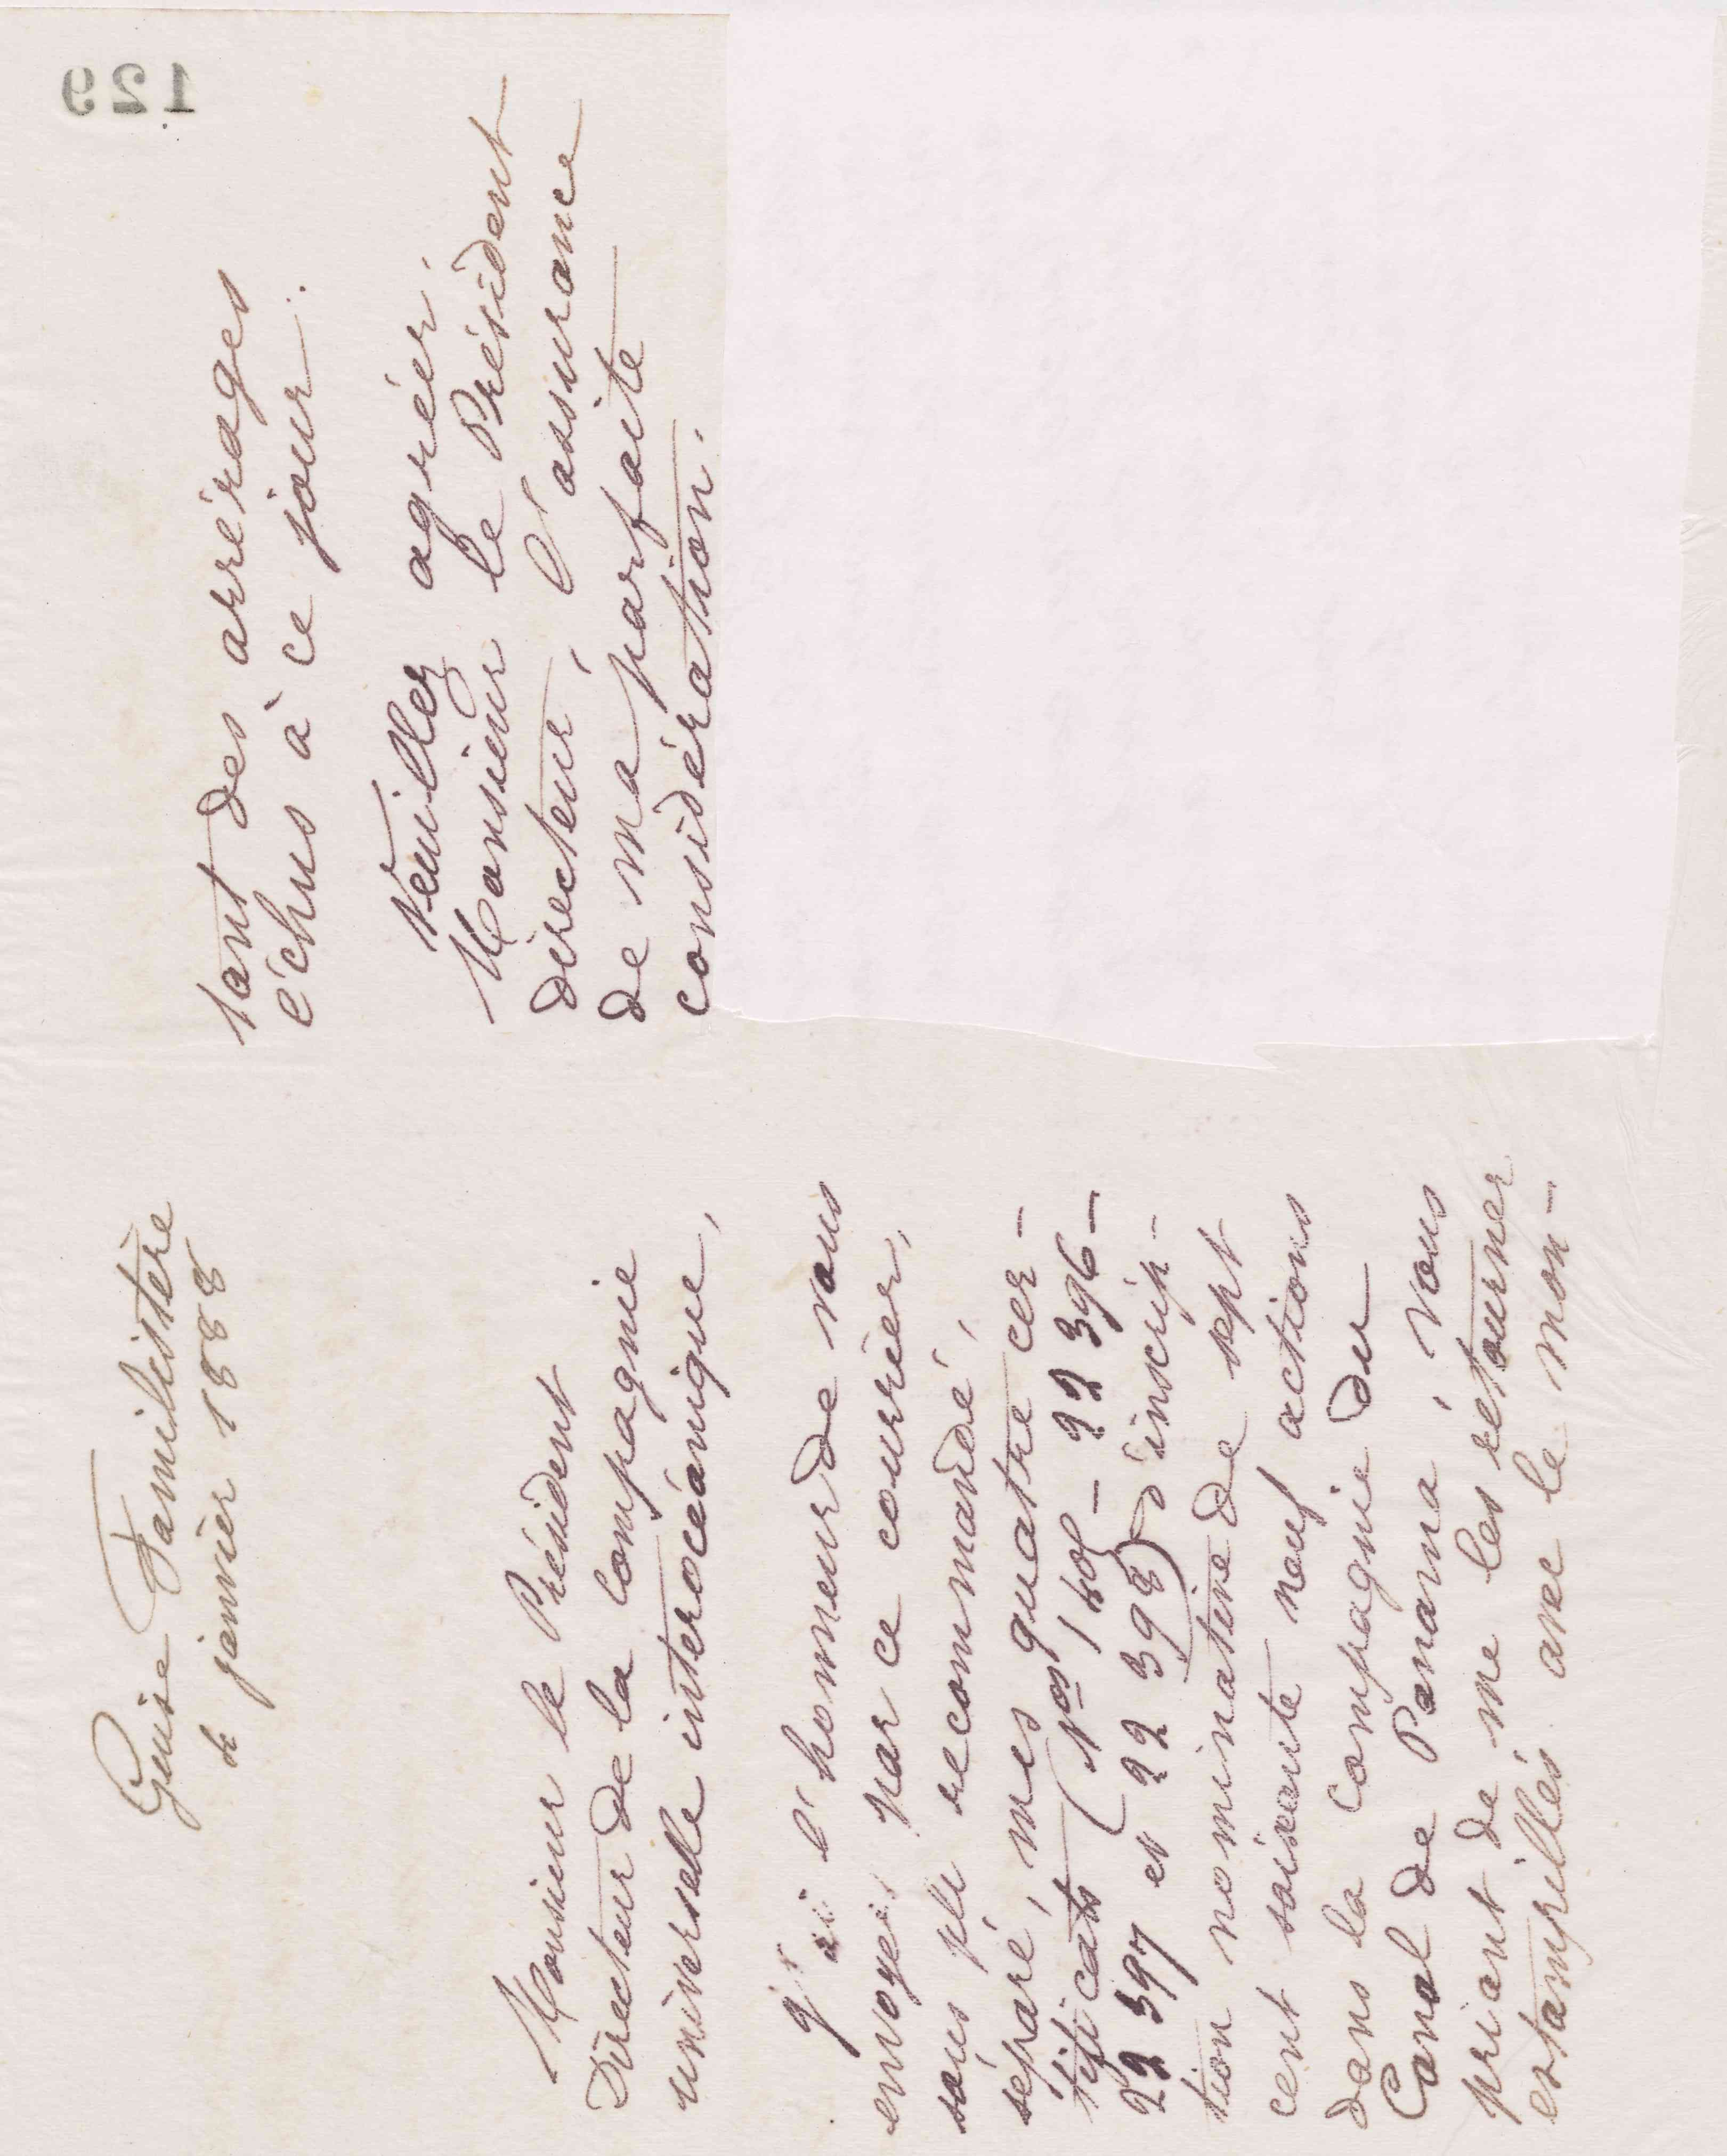 Guise Familistère
4 janvier 1888
Monsieur le Président
Directeur de la Compagnie
universelle interocéanique,
J'ai l'honneur de vous
envoyer par ce courrier,
sous pli recommandé,
séparé, mes quatre cer-
tificats (Nos 1 - 22 396 -
22 397 et 22 398) d'inscrip-
tion nominative de sept
cent soixante neuf actions
dans la Compagnie du
Canal de Panama, vous
priant de me les retourner
estampillés avec le mon-
tant des arrérages
échus à ce jour.
Veuillez agréer,
Monsieur le Président
directeur, l'assurance
de ma parfaite
considération.
129